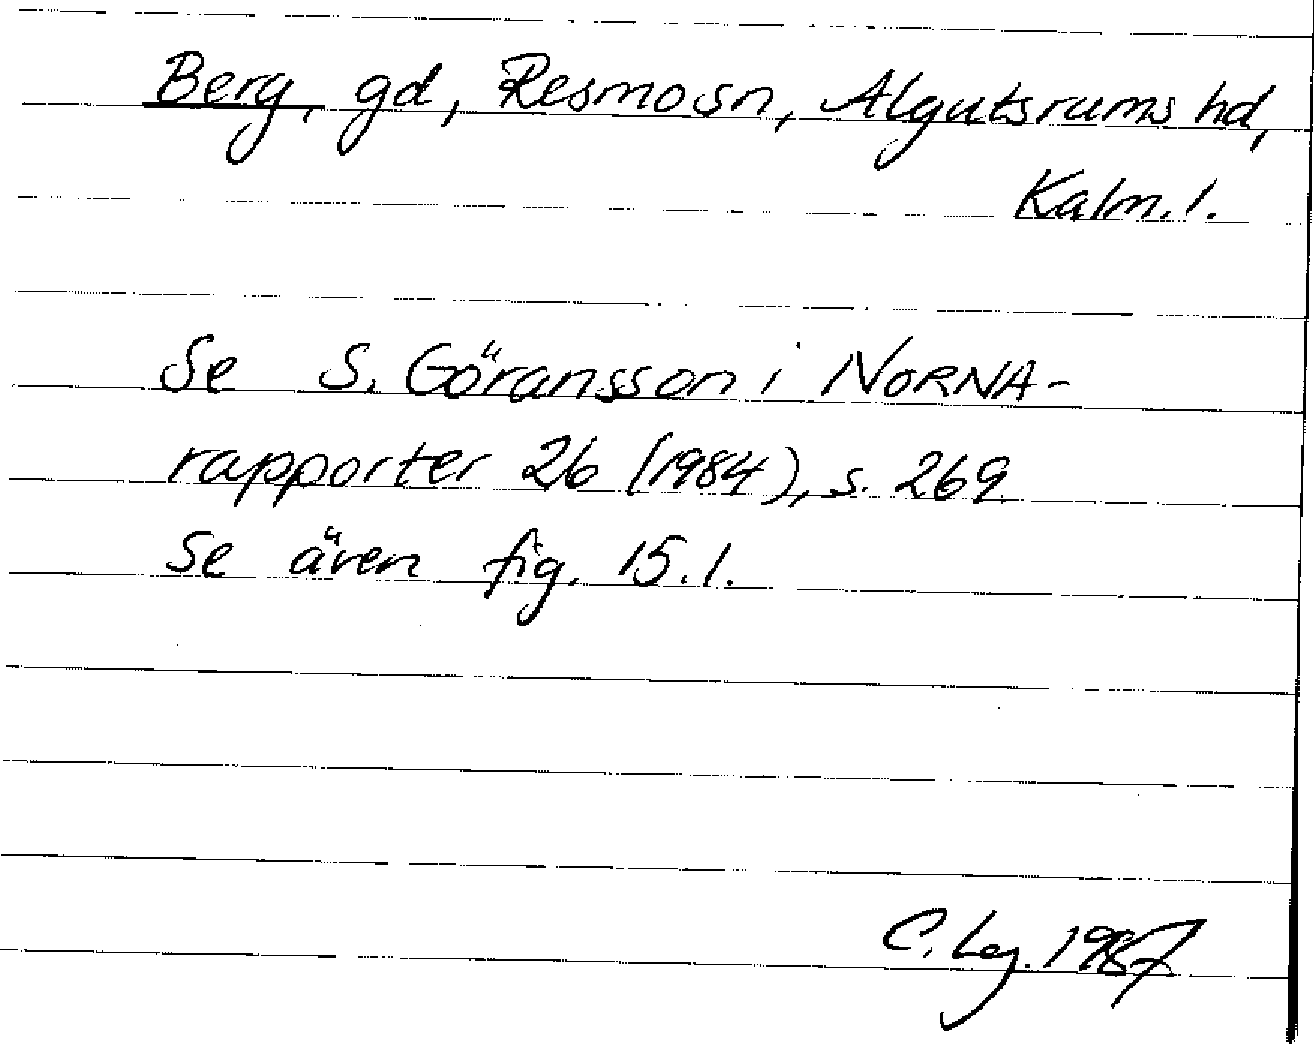 Berg, gd, Resmo sn, Algutsrums hd,
Kalm. l.
Se S. Göransson i NORNA-
rapporter 26 (1984), s. 269.
Se även fig. 15.1.
C. Leg. 1987